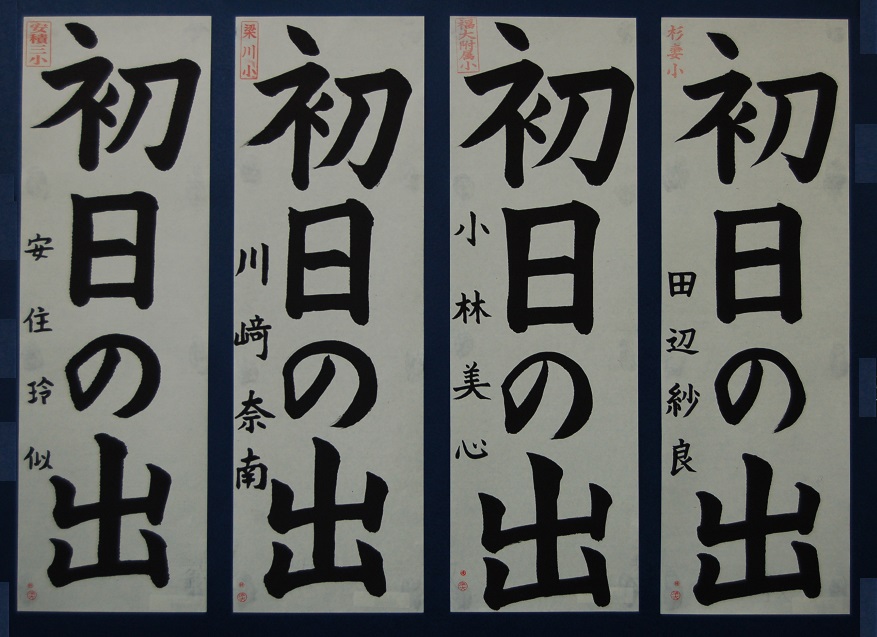 安積三小
初日の出
安住玲似
梁川小
初日の出
川﨑奈南
福大附属小
初日の出
小林美心
杉妻小
初日の出
田辺紗良